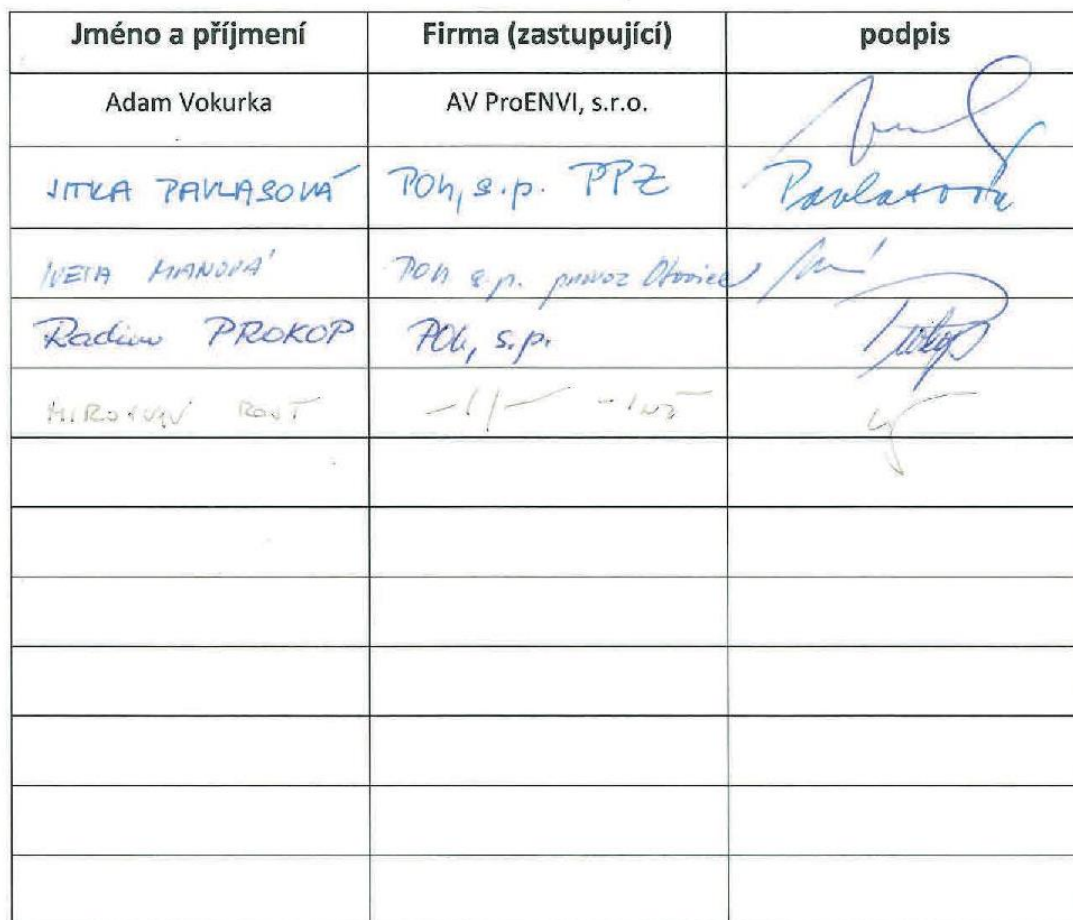 Jméno a příjmení Firma (zastupující) podpis
Adam Vokurka AV ProENVI, s.r.o.
JITKA PAVLASOVÁ POh, s.p. PPZ Pavlasová
IVETA POh s.p. provoz Otovice
Radim PROKOP POh, s.p. Prokop
-//-